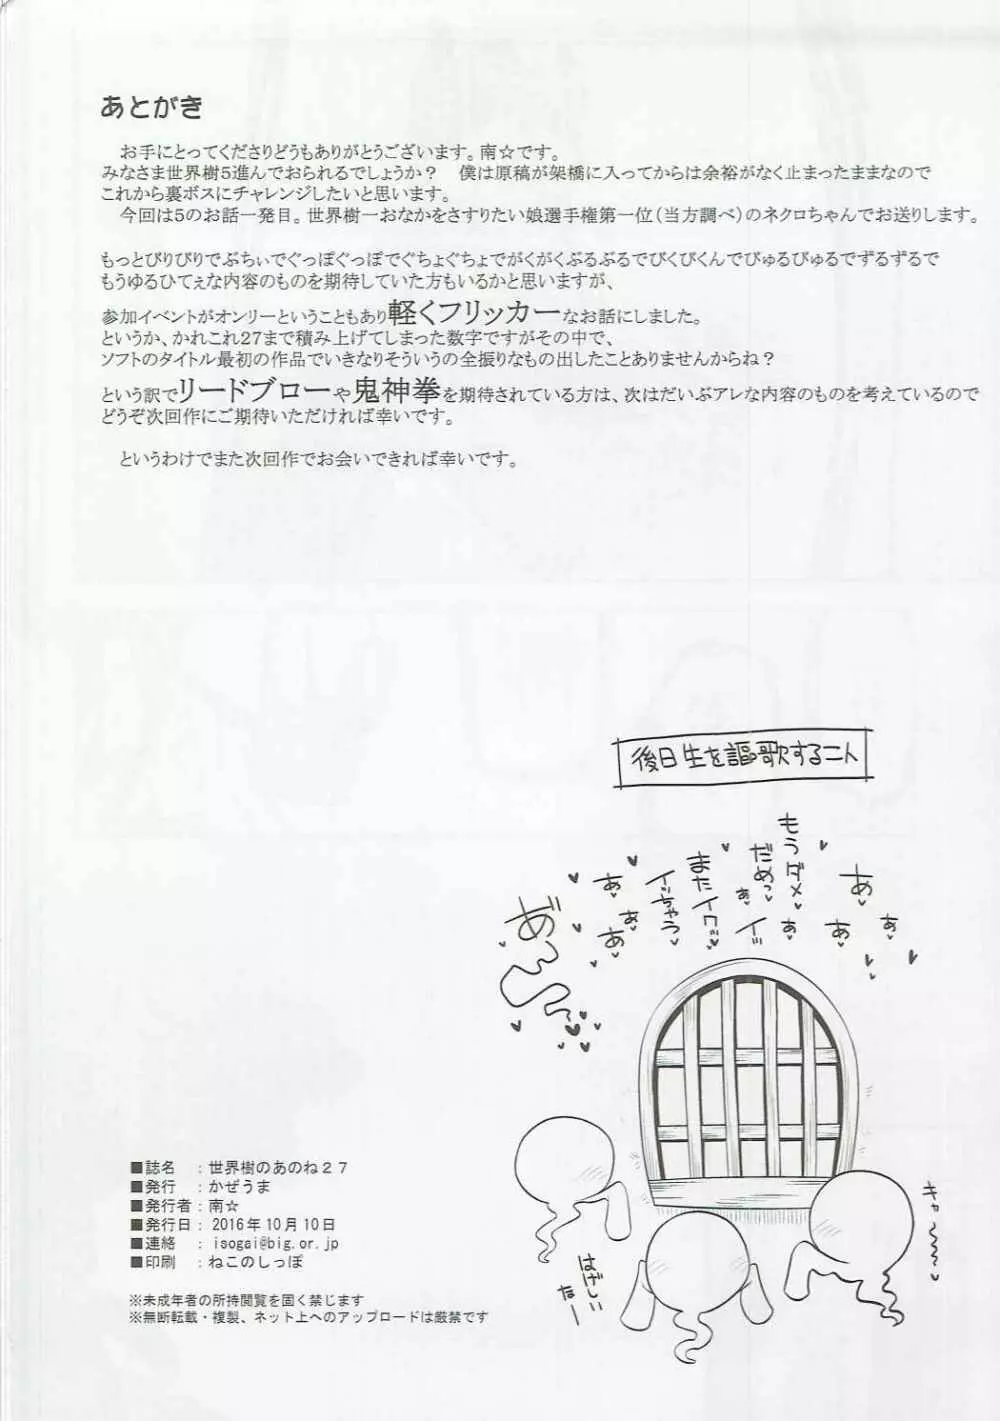 あとがき
お手にとってくださりどうもありがとうございます。南☆です。
みなさま世界樹5進んでおられるでしょうか？　僕は原稿が架橋に入ってからは余裕がなく止まったままなので
これから裏ボスにチャレンジしたいと思います。
今回は5のお話一発目。世界樹一おなかをさすりたい娘選手権第一位（当方調べ）のネクロちゃんでお送りします。
もっとびりびりでぶちぃでぐっぽぐっぽでぐちょぐちょでがくがくぶるぶるでびくびくんでびゅるびゅるでずるずるで
もうゆるひてぇな内容のものを期待していた方もいるかと思いますが、
参加イベントがオンリーということもあり軽くフリッカーなお話にしました。
というか、かれこれ27まで積み上げてしまった数字ですがその中で、
ソフトのタイトル最初の作品でいきなりそういうの全振りなもの出したことありませんからね？
という訳でリードブローや鬼神拳を期待されている方は、次はだいぶアレな内容のものを考えているので
どうぞ次回作にご期待いただければ幸いです。
というわけでまた次回作でお会いできれば幸いです。
後日生を謳歌する二人
あ♥
あ♥
あ♥
もうダメ♥
あ♥
だめっ♥
あ♥
イッ
またイクッ♥
イッちゃう♥
あ♥
あ♥
あ
あ゛〜っ
キャ〜〜♥
はげしい
なー
■誌名　：世界樹のあのね２７
■発行　：かぜうま
■発行者：南☆
■発行日：2016年10月10日
■連絡　：isogai@big.or.jp
■印刷　：ねこのしっぽ
※未成年者の所持閲覧を固く禁じます
※無断転載・複製、ネット上へのアップロードは厳禁です